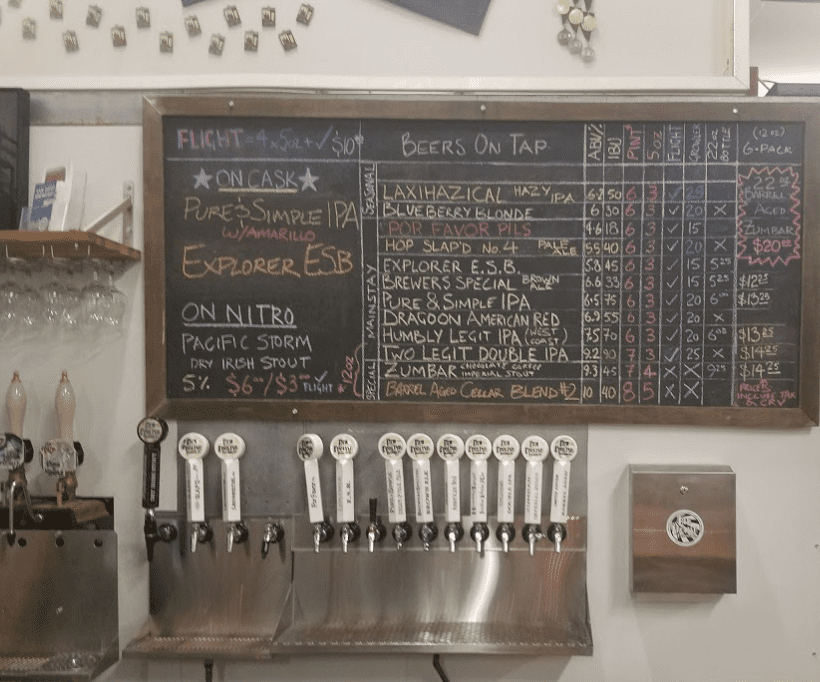 FLIGHT = 4 x 5oz + ✓ $10
★ ON CASK ★
PURE & SIMPLE IPA
W/AMARILLO
EXPLORER ESB
ON NITRO
PACIFIC STORM
DRY IRISH STOUT
5% $6⁰⁰/$3⁰⁰ FLIGHT ✓
* 12oz
BEERS ON TAP ABV% IBU PINT 5oz FLIGHT GROWLER 22oz BOTTLE (12oz) 6-PACK
SEASONAL
LAXIHAZICAL HAZY IPA 6.2 50 6 3 ✓ 25
BLUEBERRY BLONDE 6 30 6 3 ✓ 20 X
POR FAVOR PILS 4.6 18 6 3 ✓ 15
HOP SLAP'D No. 4 PALE ALE 5.5 40 6 3 ✓ 20 X
MAINSTAY
EXPLORER E.S.B. 5.8 45 6 3 ✓ 15 5²⁵
BREWERS SPECIAL BROWN ALE 6.6 33 6 3 ✓ 15 5²⁵ $12²⁵
PURE & SIMPLE IPA 6.5 75 6 3 ✓ 20 6⁰⁰ $13²⁵
DRAGOON AMERICAN RED 6.9 55 6 3 ✓ 20 X
HUMBLY LEGIT IPA (WEST COAST) 7.5 70 6 3 ✓ 20 6⁰⁰ $13²⁵
TWO LEGIT DOUBLE IPA 9.2 90 7 3 ✓ 25 X $14²⁵
SPECIAL
ZUMBAR CHOCOLATE COFFEE IMPERIAL STOUT 9.3 45 7 4 X X 9²⁵ $14²⁵
BARREL AGED CELLAR BLEND #2 10 40 8 5 X X
22oz
BARREL
AGED
ZUMBAR
$20⁰⁰
PRICES
INCLUDE TAX
& CRV